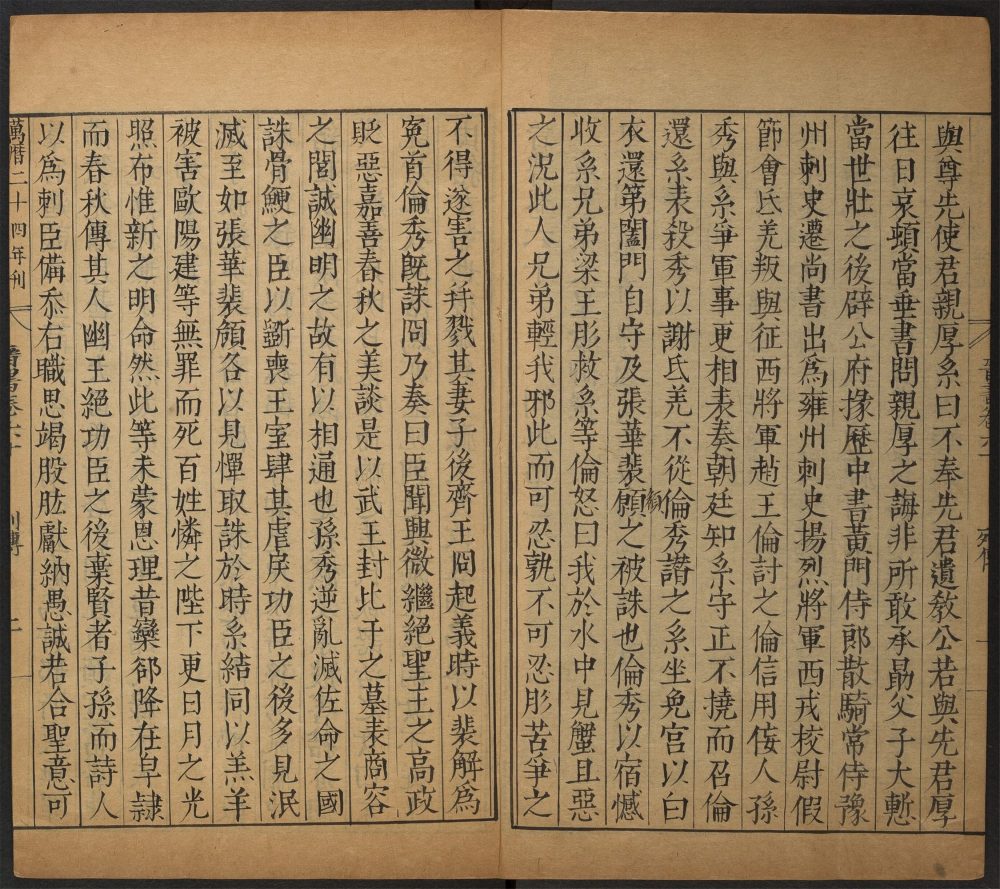 與尊先使君親厚系曰不奉先君遺教公若與先君厚
往日哀頓當垂書問親厚之誨非所敢承勗父子大慙
當世壯之後辟公府掾歷中書黃門侍郎散騎常侍豫
州刺史遷尚書出爲雍州刺史揚烈將軍西戎校尉假
節會氐羌叛與征西將軍趙王倫討之倫信用佞人孫
秀與系爭軍事更相表奏朝廷知系守正不撓而召倫
還系表殺秀以謝氐羌不從倫秀譖之系坐免官以白
衣還第闔門自守及張華裴頠之被誅也倫秀以宿憾
頠
收系兄弟梁王肜救系等倫怒曰我於水中見蟹且惡
之況此人兄弟輕我邪此而可忍孰不可忍肜苦爭之
不得遂害之幷戮其妻子後齊王冏起義時以裴解爲
寃首倫秀旣誅冏乃奏曰臣聞興微繼絕聖王之高政
貶惡嘉善春秋之美談是以武王封比干之墓表商容
之閭誠幽明之故有以相通也孫秀逆亂滅佐命之國
誅骨鯁之臣以斵喪王室肆其虐戾功臣之後多見泯
滅至如張華裴頠各以見憚取誅於時系結同以羔羊
被害歐陽建等無罪而死百姓憐之陛下更日月之光
照布惟新之明命然此等未蒙恩理昔欒郤降在皁隷
而春秋傳其人幽王絕功臣之後棄賢者子孫而詩人
以爲刺臣備忝右職思竭股肱獻納愚誠若合聖意可
萬曆二十四年刊
列傳
二